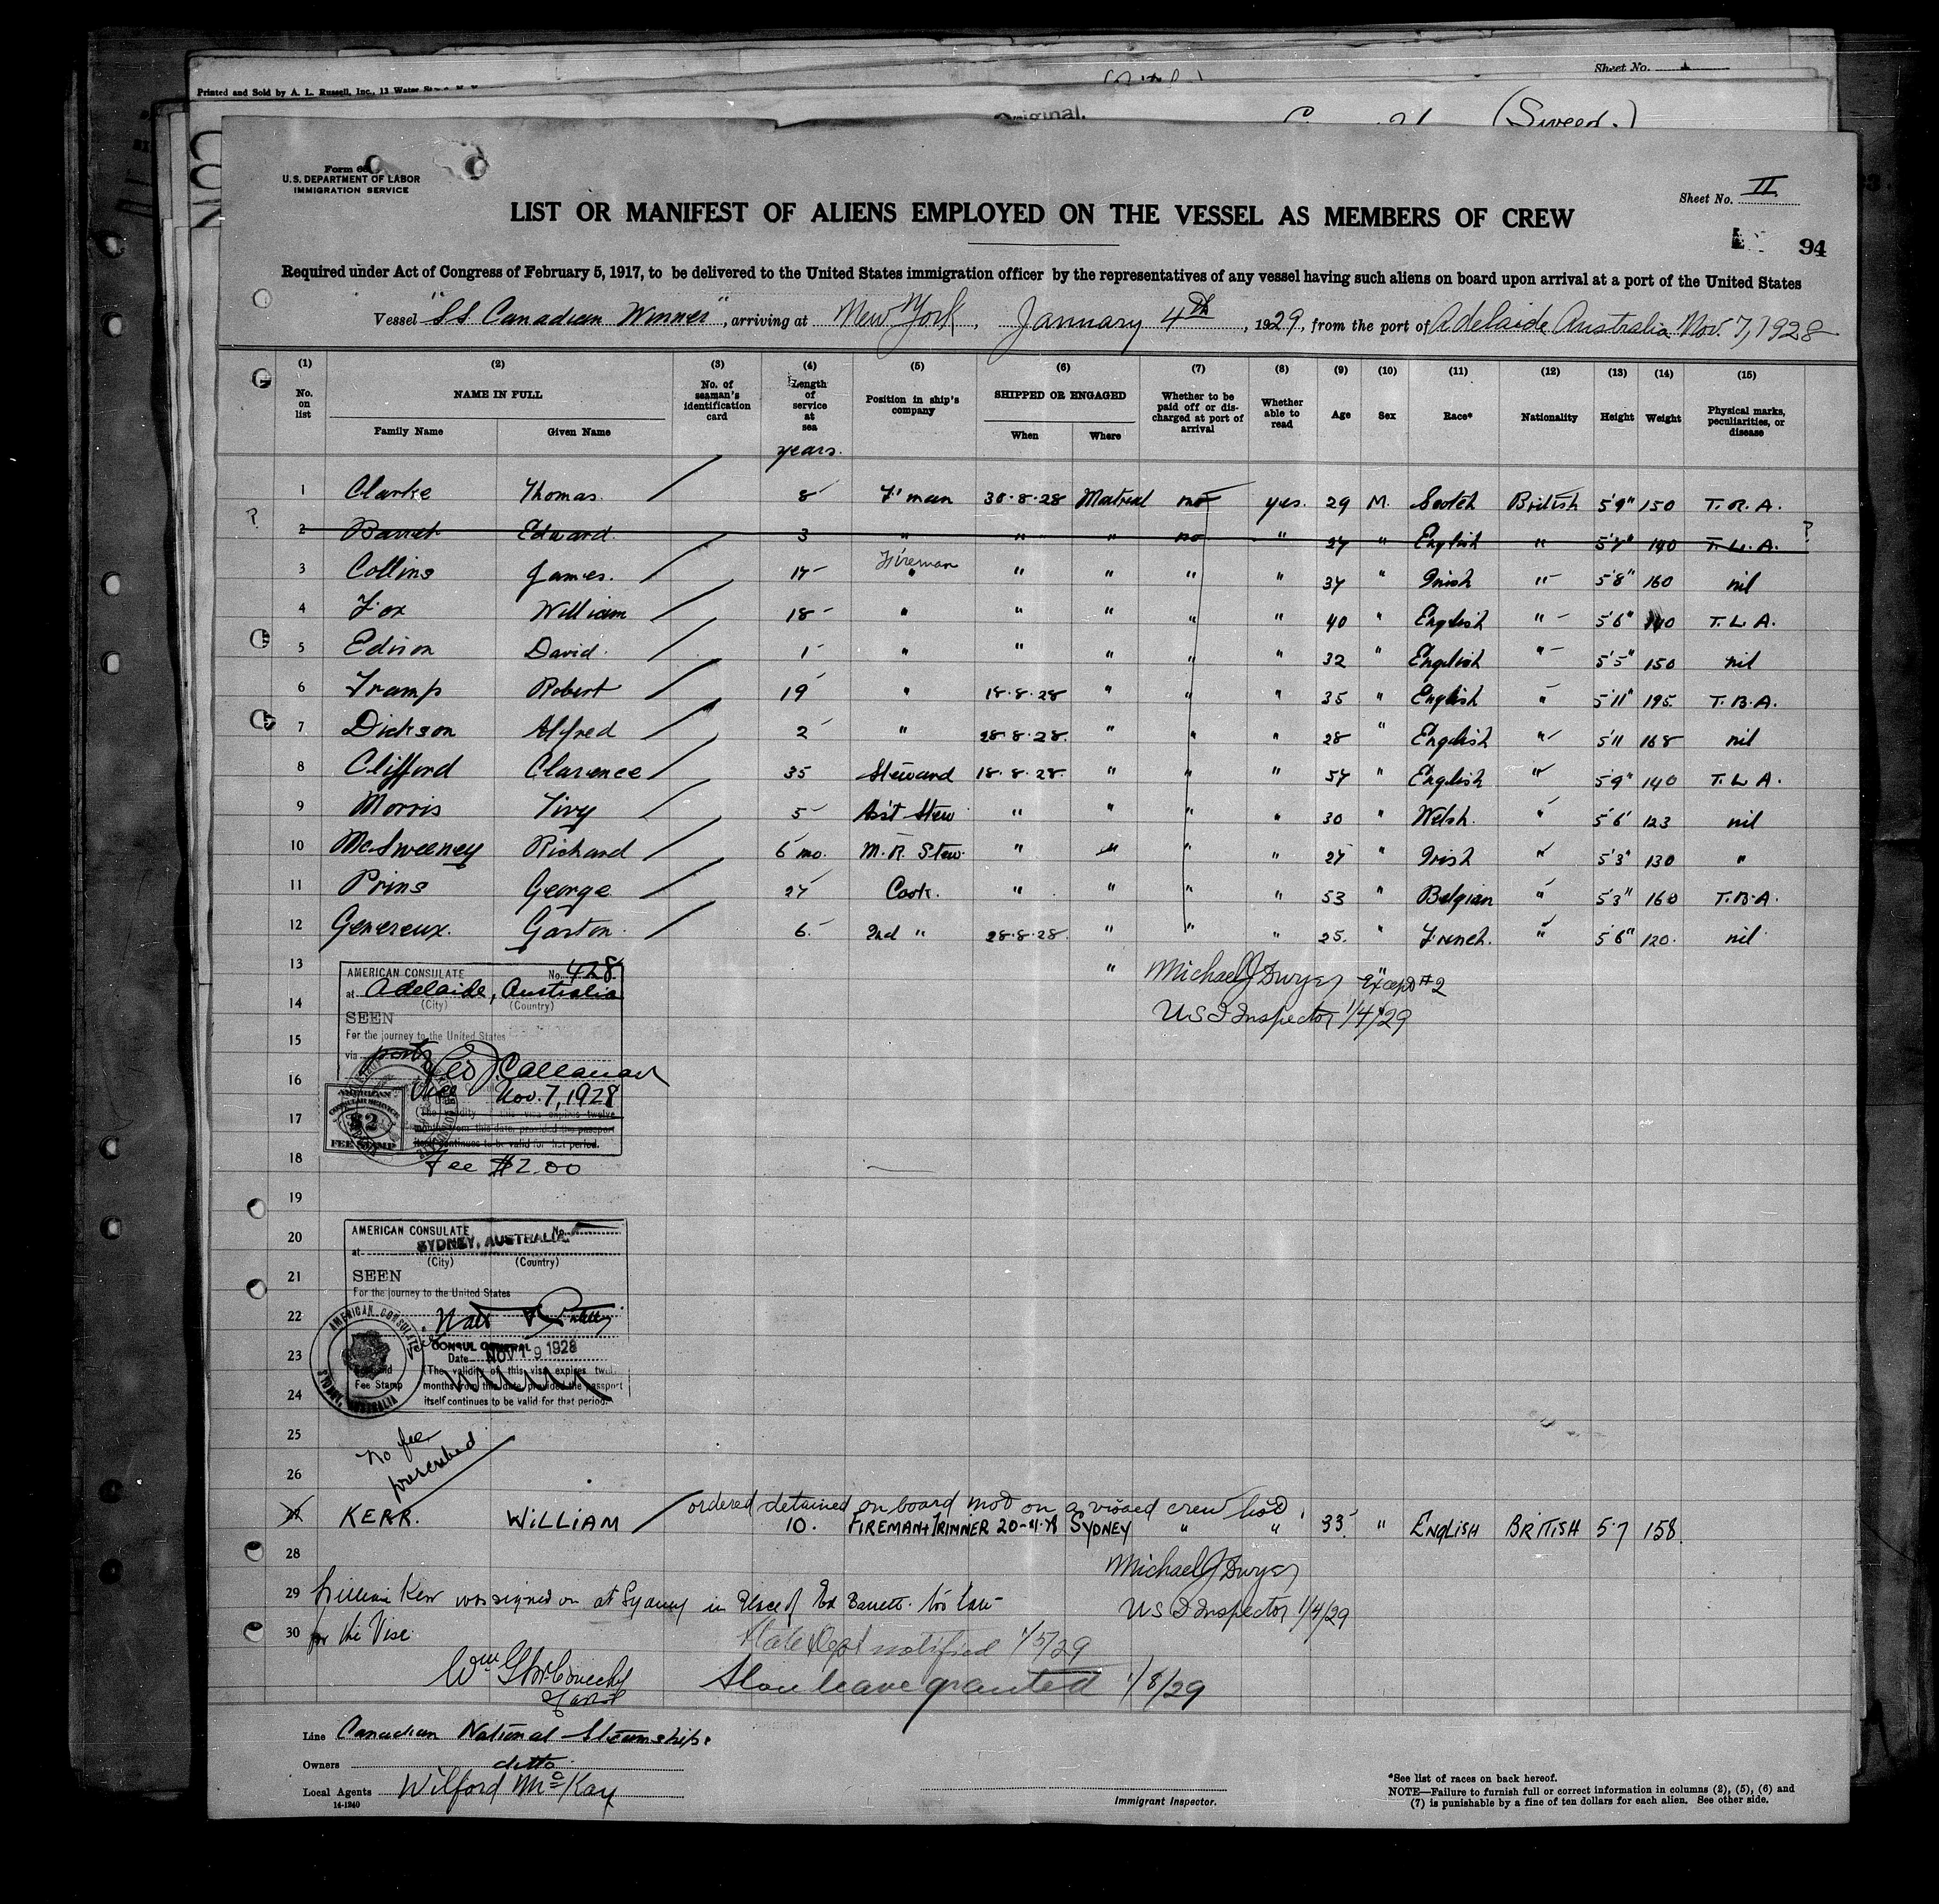 Sheet No.
Printed and Sold by A. L. Russell, Inc., 13 Water
Original.
(Sweed.)
Form 68
U.S. DEPARTMENT OF LABOR
IMMIGRATION SERVICE
Sheet No. II
LIST OR MANIFEST OF ALIENS EMPLOYED ON THE VESSEL AS MEMBERS OF CREW
94
Required under Act of Congress of February 5, 1917, to be delivered to the United States immigration officer by the representatives of any vessel having such aliens on board upon arrival at a port of the United States
Vessel "SS Canadian Winner", arriving at New York, January 4th, 1929, from the port of Adelaide Australia Nov. 7, 1928
(1) (2) (3) (4) (5) (6) (7) (8) (9) (10) (11) (12) (13) (14) (15)
No. on list NAME IN FULL Family Name Given Name No. of seaman's identification card Length of service at sea Position in ship's company SHIPPED OR ENGAGED When Where Whether to be paid off or discharged at port of arrival Whether able to read Age Sex Race* Nationality Height Weight Physical marks, peculiarities, or disease
years.
1 Clarke Thomas. 8 F'man 30-8-28 Montreal no yes. 29 M. Scotch British 5'9" 150 T. R. A.
? 2 Barret Edward. 3 " " " no " 27 " English " 5'7" 140 T. L. A. ?
3 Collins James. 17 Fireman " " " " " 37 " Irish " 5'8" 160 nil
4 Fox William 18 " " " " " 40 " English " 5'6" 140 T. L A.
5 Edison David. 1 " " " " " 32 " English " 5'5" 150 nil
6 Tramp Robert 19 " 18-8-28 " " " 35 " English " 5'11" 195 T. B. A.
7 Dickson Alfred 2 " 28-8-28. " " " 28 " English " 5'11 168 nil
8 Clifford Clarence 35 Steward 18-8-28. " " " 57 " English " 5'9" 140 T. L A.
9 Morris Tivy 5 Ass't Stew " " " " 30 " Welsh. " 5'6' 123 nil
10 McSweeney Richard 6 mo. M. R. Stew. " " " " 27 " Irish " 5'3" 130 "
11 Prins George 27 Cook. " " " " 53 " Belgian " 5'3" 160 T. B. A.
12 Genereux. Gaston. 6. 2nd " 28-8-28. " " " 25. " French. " 5'6" 120. nil
13 " Michael J Dwyer except #2
14 U S I Inspector 1/4/29
15
16
17
18
19
20
21
22
23
24
25
26
AMERICAN CONSULATE No. 428
at Adelaide, Australia
(City) (Country)
SEEN
For the journey to the United States
via ports
Geo J. Callanan
Vice Consul
Nov. 7, 1928
(The validity of this visa expires twelve
months from this date, provided the passport
itself continues to be valid for that period.
AMERICAN
CONSULAR SERVICE
$2
FEE STAMP
Fee $2.00
AMERICAN CONSULATE No.
at SYDNEY, AUSTRALIA.
(City) (Country)
SEEN
For the journey to the United States
Vice
CONSUL GENERAL
Date NOV 19 1928
(The validity of this visa expires twel
months from this date, provided the passport
itself continues to be valid for that period.
Fee Stamp
AMERICAN CONSULATE
SYDNEY, AUSTRALIA
No fee
prescribed
ordered detained on board not on a visaed crew list
27 KERR. WILLIAM 10. FIREMAN+TRIMMER 20-11-28 SYDNEY " " 33. " ENGLISH BRITISH 5.7 158.
28 Michael J Dwyer
29 William Kerr was signed on at Sydney in Place of Ed Barrett. too late
U S I Inspector 1/4/29
30 for the Vise.
State Dept notified 1/5/29
Shore leave granted 1/8/29
Line Canadian National Steamships.
Owners ditto.
Local Agents Wilford McKay
14-1240
Immigrant Inspector.
*See list of races on back hereof.
NOTE—Failure to furnish full or correct information in columns (2), (5), (6) and
(7) is punishable by a fine of ten dollars for each alien. See other side.